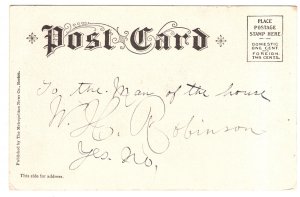 Post Card
PLACE
POSTAGE
STAMP HERE
DOMESTIC
ONE CENT
FOREIGN
TWO CENTS.
To the Man of the house
W. H. Robinson
Yes. No,
Published by The Metropolitan News Co., Boston.
This side for address.